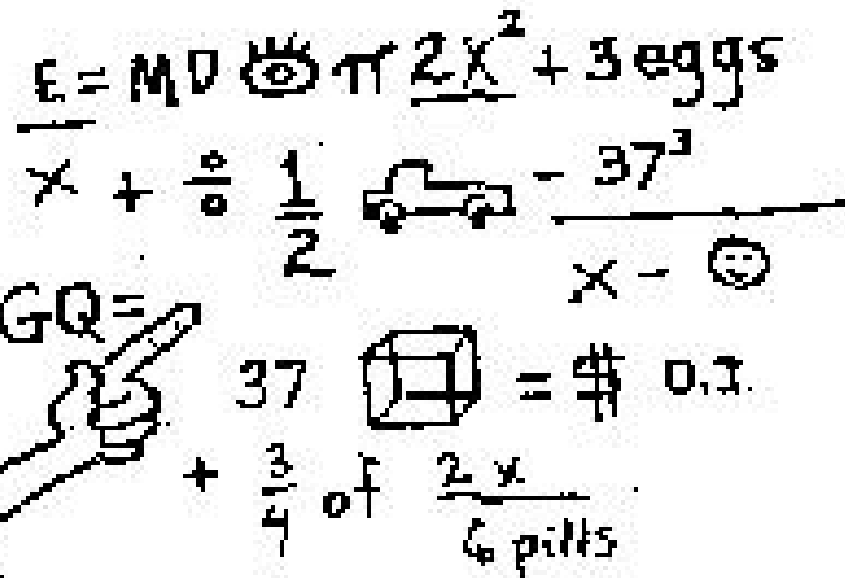 E = MD π 2x² + 3 eggs
x + ÷ 1/2 - 37³
x -
GQ =
37 = $ O.J.
+ 3/4 of 2x
6 pills